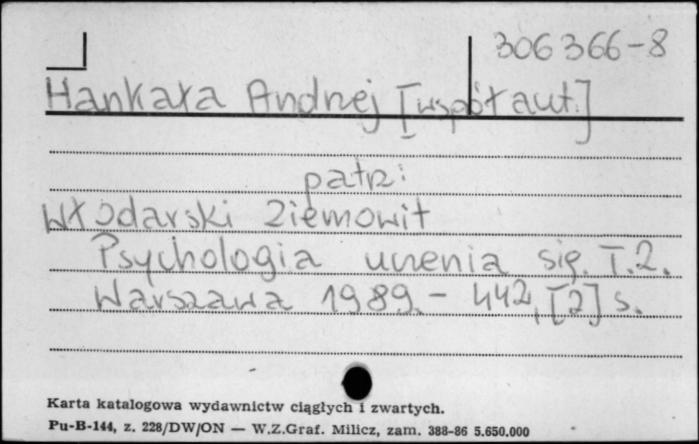 306366-8
Hankała Andrzej [współaut.]
patrz:
Włodarski Ziemowit
Psychologia uczenia się. T.2.
Warszawa 1989. - 442, [2] s.
Karta katalogowa wydawnictw ciągłych i zwartych.
Pu-B-144, z. 228/DW/ON — W.Z.Graf. Milicz, zam. 388-86 5.650.000